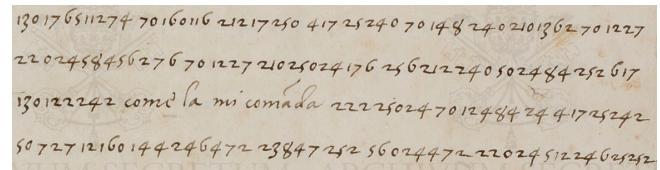 130176511274 70160116 21217250 41725240 70148 2402101362 701227
2202458456276 701227 21025024176 256212240502484252617
130122242 come la mi comãda 2222502470124842441725242
5072712160144246472 23847252 56024472 2202451224625252